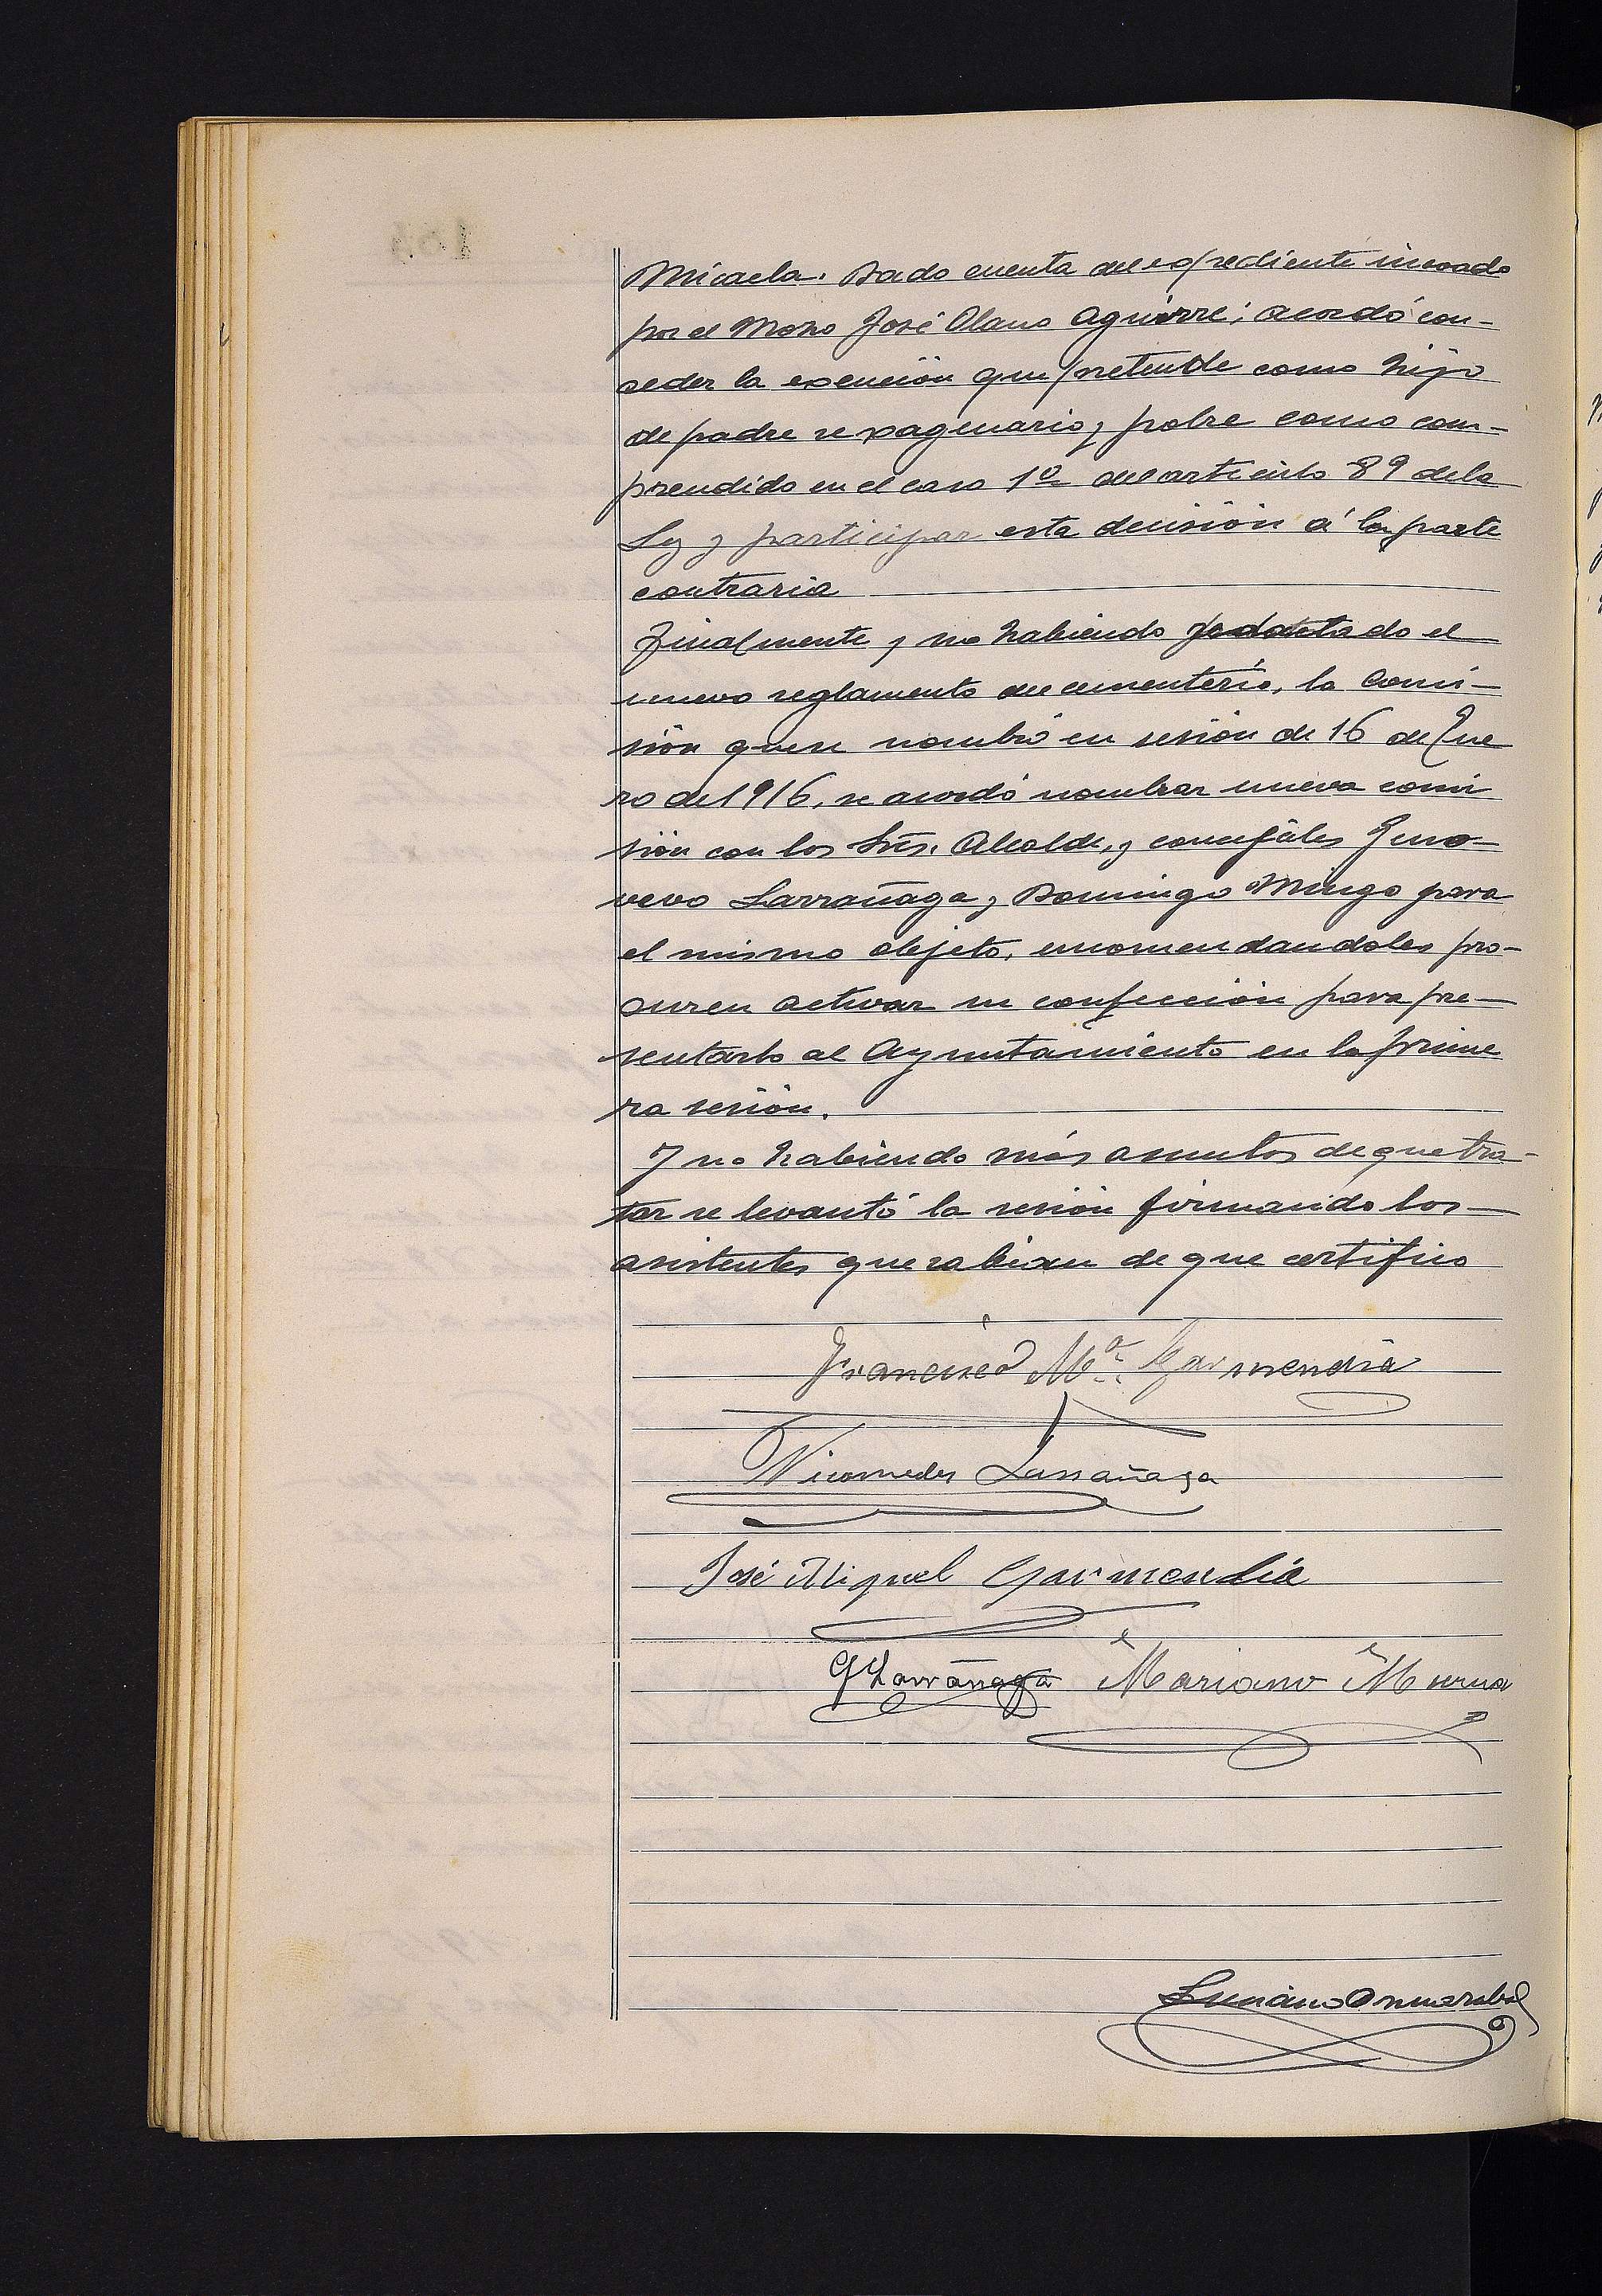 Micaela. Dado cuenta del expediente incoado
por el Mozo José Olano Aguirre; acordó con-
ceder la exención que pretende como hijo
de padre sexagenario y pobre como com-
prendido en el caso 1º del artículo 89 de la
Ley y participar esta decisión á la parte
contraria
Finalmente y no habiendo redactado el
nuevo reglamento del cementerio, la Comi-
sión que se nombró en sesión de 16 de Ene
ro de 1916, se acordó nombrar nueva comi
sión con los Srs. Alcalde, y concejales Geno-
vevo Larrañaga y Domingo Mugo para
el mismo objeto, encomendandoles pro-
curen activar su confección para pre-
sentarlo al Ayuntamiento en la prime
ra sesión.
Y no habiendo más asuntos de que tra-
tar se levantó la sesión firmando los
asistentes que sabian de que certifico
Francisco Mª Garmendia
Nicomedes Larrañaga
José Miguel Garmendia
G Larrañaga Mariano Murua
Luciano